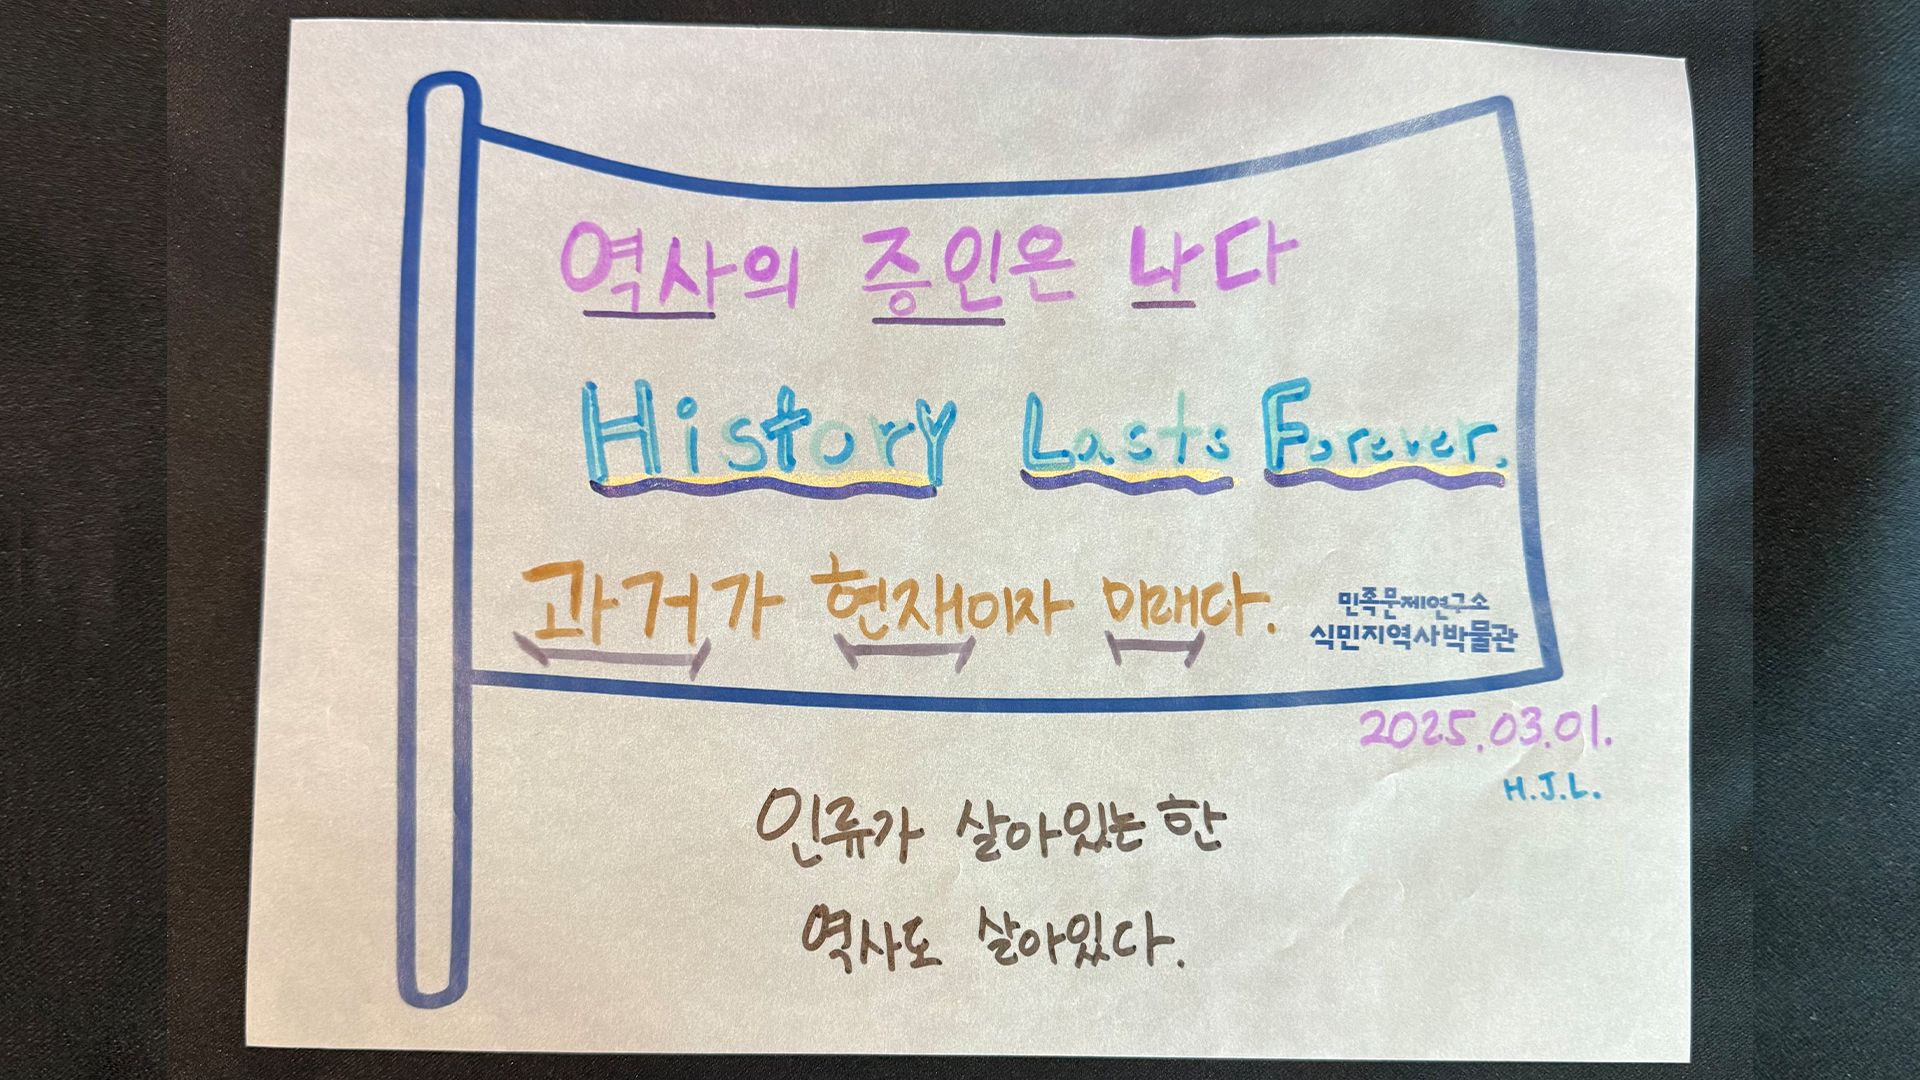 역사의 증인은 나다
History Lasts Forever.
과거가 현재이자 미래다.
민족문제연구소
식민지역사박물관
2025.03.01.
H.J.L.
인류가 살아있는 한
역사도 살아있다.